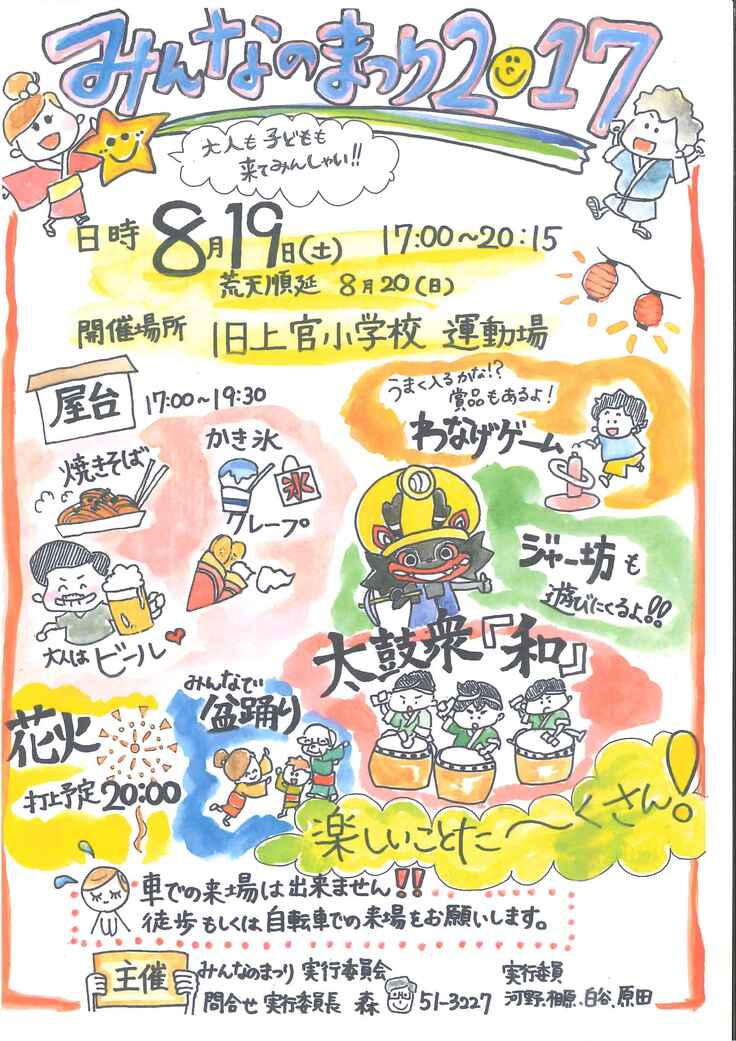 みんなのまつり2017
大人も子どもも
来てみんしゃい!!
日時 8月19日(土) 17:00~20:15
荒天順延 8月20(日)
開催場所 旧上官小学校 運動場
屋台 17:00~19:30
焼きそば
かき氷
氷
クレープ
大人はビール
うまく入るかな!?
賞品もあるよ!
わなげゲーム
ジャー坊も
遊びにくるよ!!
太鼓衆『和』
花火
打上予定 20:00
みんなで
盆踊り
楽しいことた〜くさん!
車での来場は出来ません!!
徒歩もしくは自転車での来場をお願いします。
主催 みんなのまつり 実行委員会
問合せ 実行委員長 森 51-3227
実行委員
河野、相原、白谷、原田